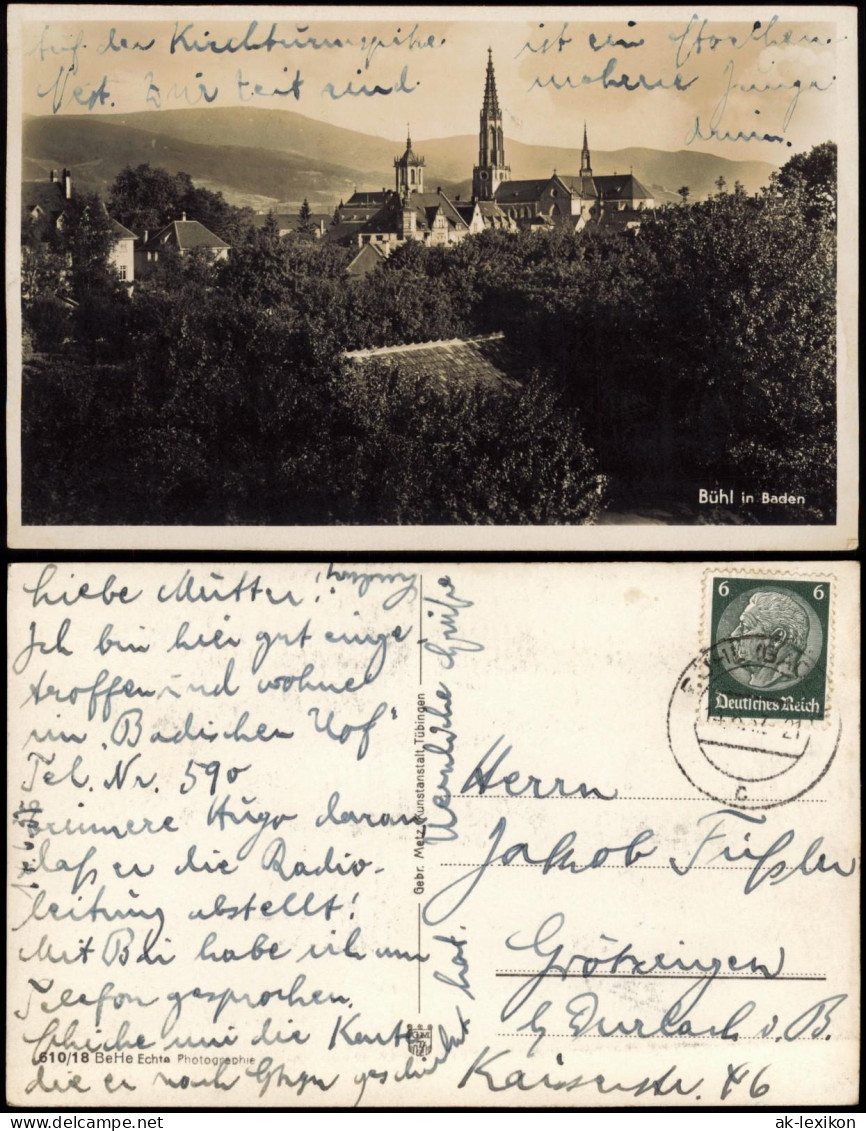 Auf der Kirchturmspitze ist ein Storchen
Nest. Zur Zeit sind mehrere Junge
darin.
Bühl in Baden
Liebe Mutter!
Ich bin hier gut einge-
troffen und wohne
im „Badischen Hof"
Tel. Nr. 590
erinnere Hugo daran
daß er die Radio-
leitung abstellt!
Mit Bli habe ich am
Telefon gesprochen.
Schicke mir die Karte
die er nach geschickt
hat.
Herzliche Grüße
Gebr. Metz, Kunstanstalt, Tübingen
610/18 BeHe Echte Photographie
6 6
Deutsches Reich
BÜHL (BADEN)
c
Herrn
Jakob Füßler
Grötzingen
b/ Durlach i. B.
Kaiserstr. 46
ak-lexikon